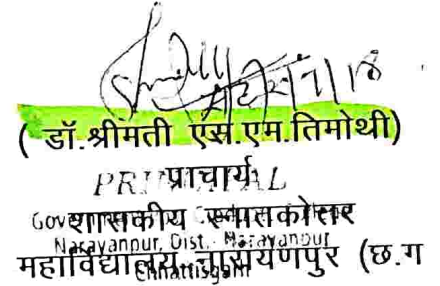 ( डॉ.श्रीमती एस.एम.तिमोथी)
प्राचार्य
PRINCIPAL
शासकीय स्नातकोत्तर
Narayanpur, Dist.- Narayanpur
महाविद्यालय नारायणपुर (छ.ग
Chhattisgarh